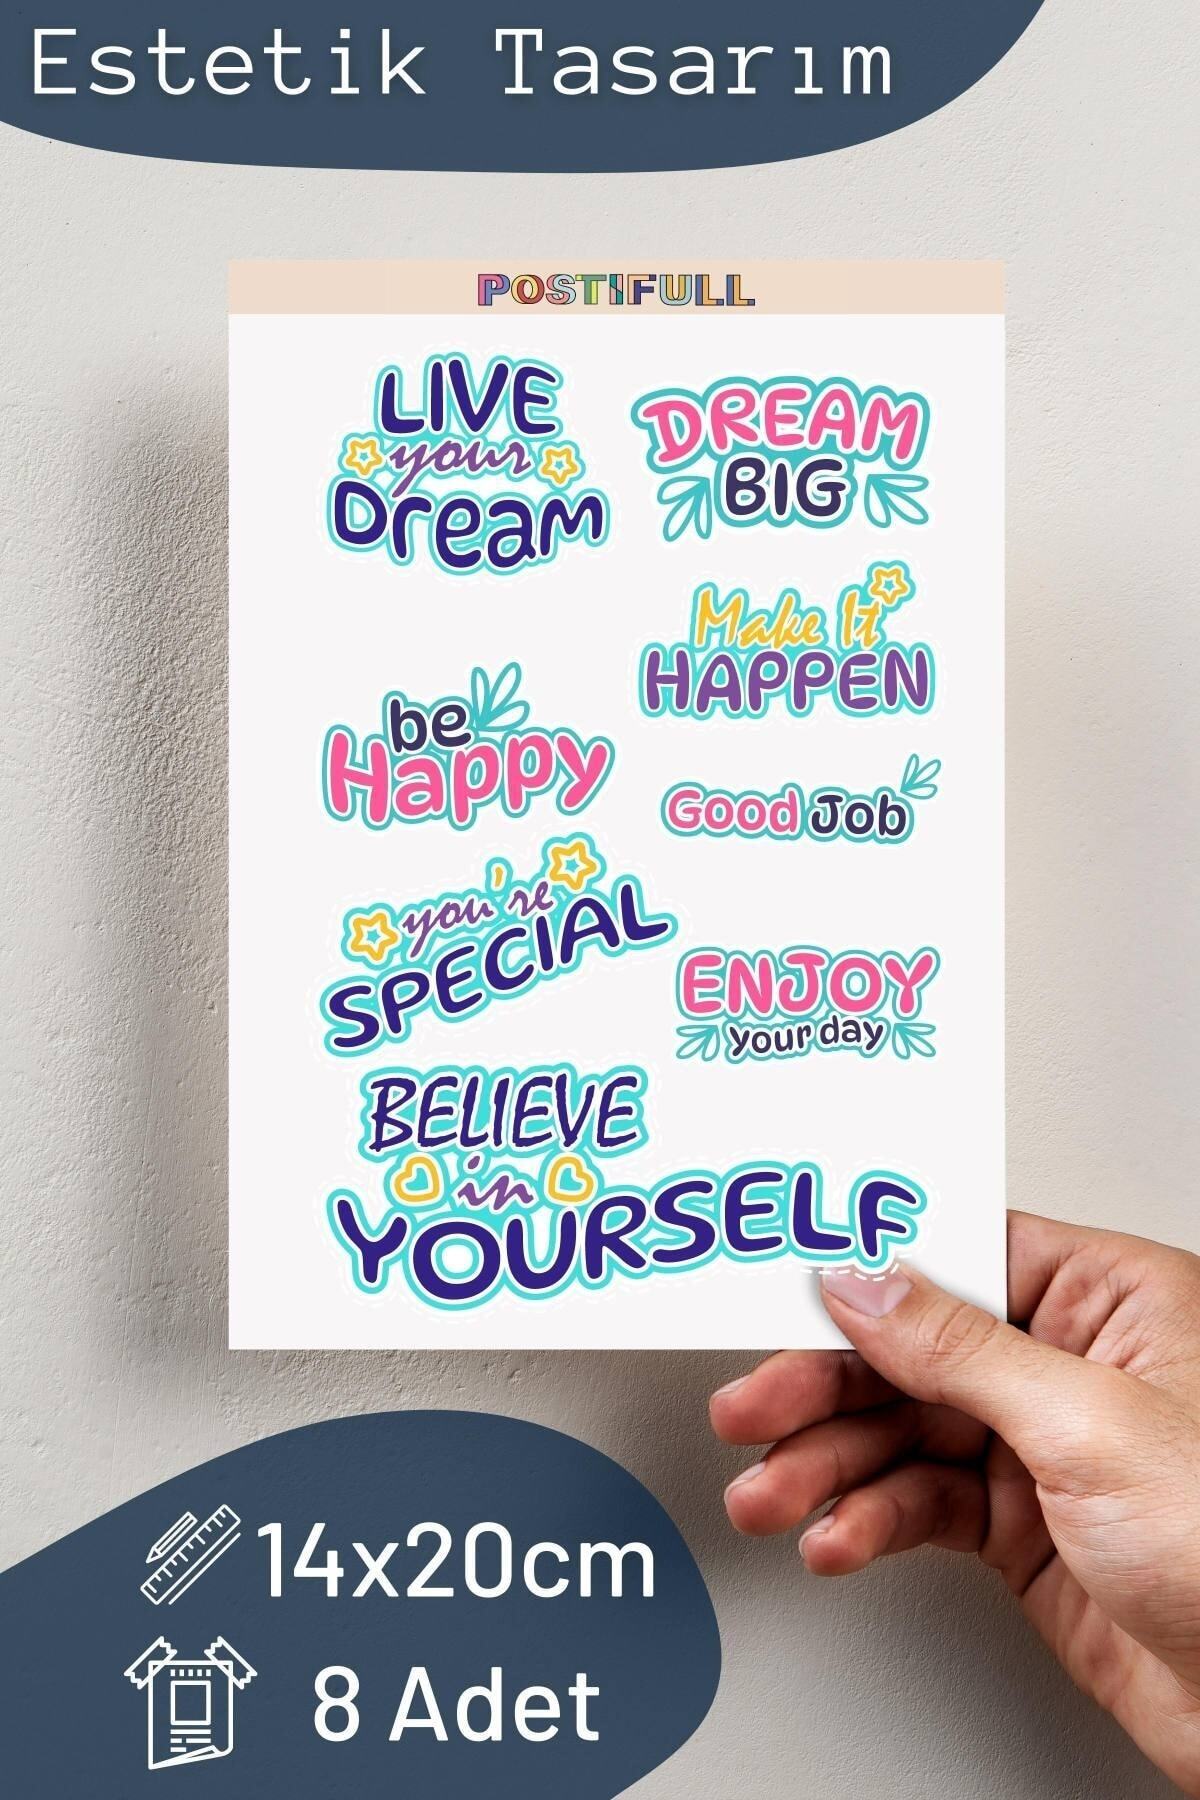 Estetik Tasarım
POSTIFULL
LIVE
your
Dream
DREAM
BIG
Make It
HAPPEN
be
Happy
Good Job
you're
SPECIAL
ENJOY
your day
BELIEVE
in
YOURSELF
14x20cm
8 Adet